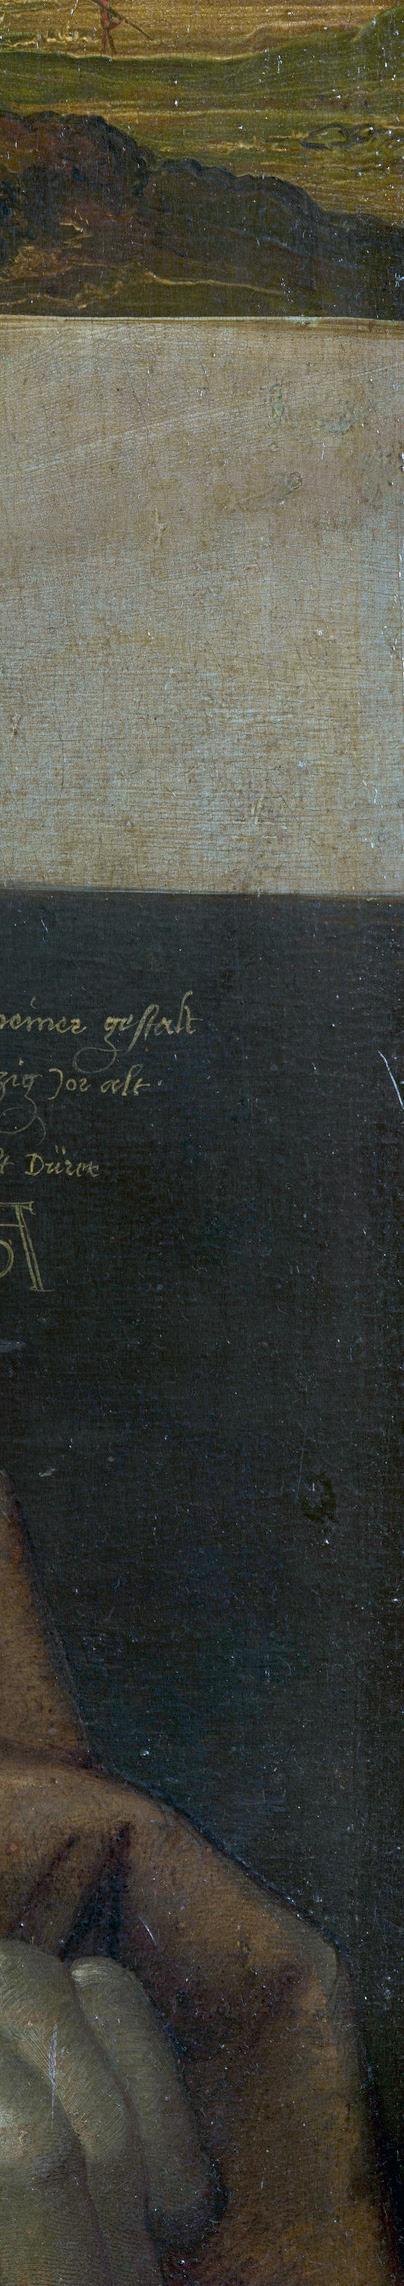 meiner gestalt
zig Jor alt
Dürer